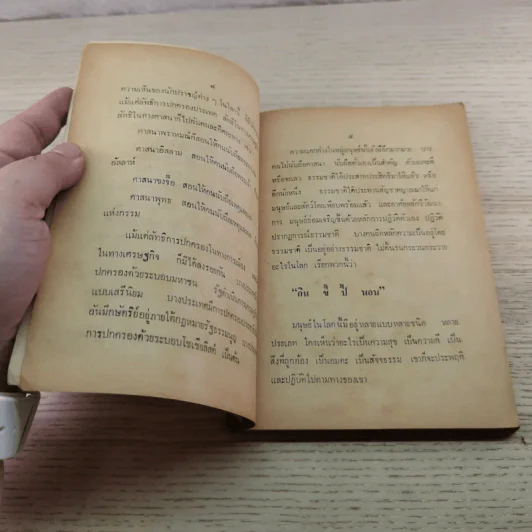 ๘
ความเห็นของนักปราชญ์ต่าง ๆ ในโลกนี้
แม้แต่ลัทธิการปกครองประเทศ
ลัทธิในทางศาสนาก็ไป
ศาสนาพราหมณ์ก็สอนให้คนนับถือ
ศาสนาอิสลาม สอนให้คนนับถือ
อัลลาห์
ศาสนาขงจื๊อ สอนให้คนนับถือ
ศาสนาพุทธ สอนให้คนนับถือ
แห่งกรรม
แม้แต่ลัทธิการปกครองในทางการเมือง
ในทางเศรษฐกิจ ก็มิได้ลงรอยกัน
ปกครองด้วยระบอบมหาชน รัฐ
แบบเสรีนิยม บางประเทศมีการปกครอง
อันมีกษัตริย์อยู่ภายใต้กฎหมายรัฐธรรมนูญ
การปกครองด้วยระบอบโซเชลิสต์ เป็นต้น
๙
ความแตกต่างในหมู่มนุษย์นั้นยังมีอีกมากมาย บาง
คนไม่นับถือศาสนา นับถือตัวเองเป็นสำคัญ ตัวเองจะดี
หรือจะเลว ธรรมชาติได้ประสาทประสิทธิมาให้แล้ว หรือ
อีกนัยหนึ่ง ธรรมชาติได้ประทานสัญชาตญาณมาให้แก่
มนุษย์และสัตว์โดยเพียบพร้อมแล้ว และอาศัยหลักวิวัฒ
การ มนุษย์ย่อมเจริญขึ้นด้วยหลักการปฏิวัติตัวเอง ปฏิวัติ
ปรากฏการณ์ธรรมชาติ บางคนยึดหลักความเป็นอยู่โดย
ธรรมชาติ เป็นอยู่อย่างธรรมชาติ ไม่ดิ้นรนกระวนกระวาย
อะไรในโลก เรียกพวกนี้ว่า
“กิน ขี้ ปี้ นอน”
มนุษย์ในโลกนี้มีอยู่หลายแบบหลายชนิด หลาย
ประเภท ใครเห็นว่าอะไรเป็นความสุข เป็นความดี เป็น
สิ่งที่ถูกต้อง เป็นอมตะ เป็นสัจจธรรม เขาก็จะประพฤติ
และปฏิบัติไปตามทางของเขา